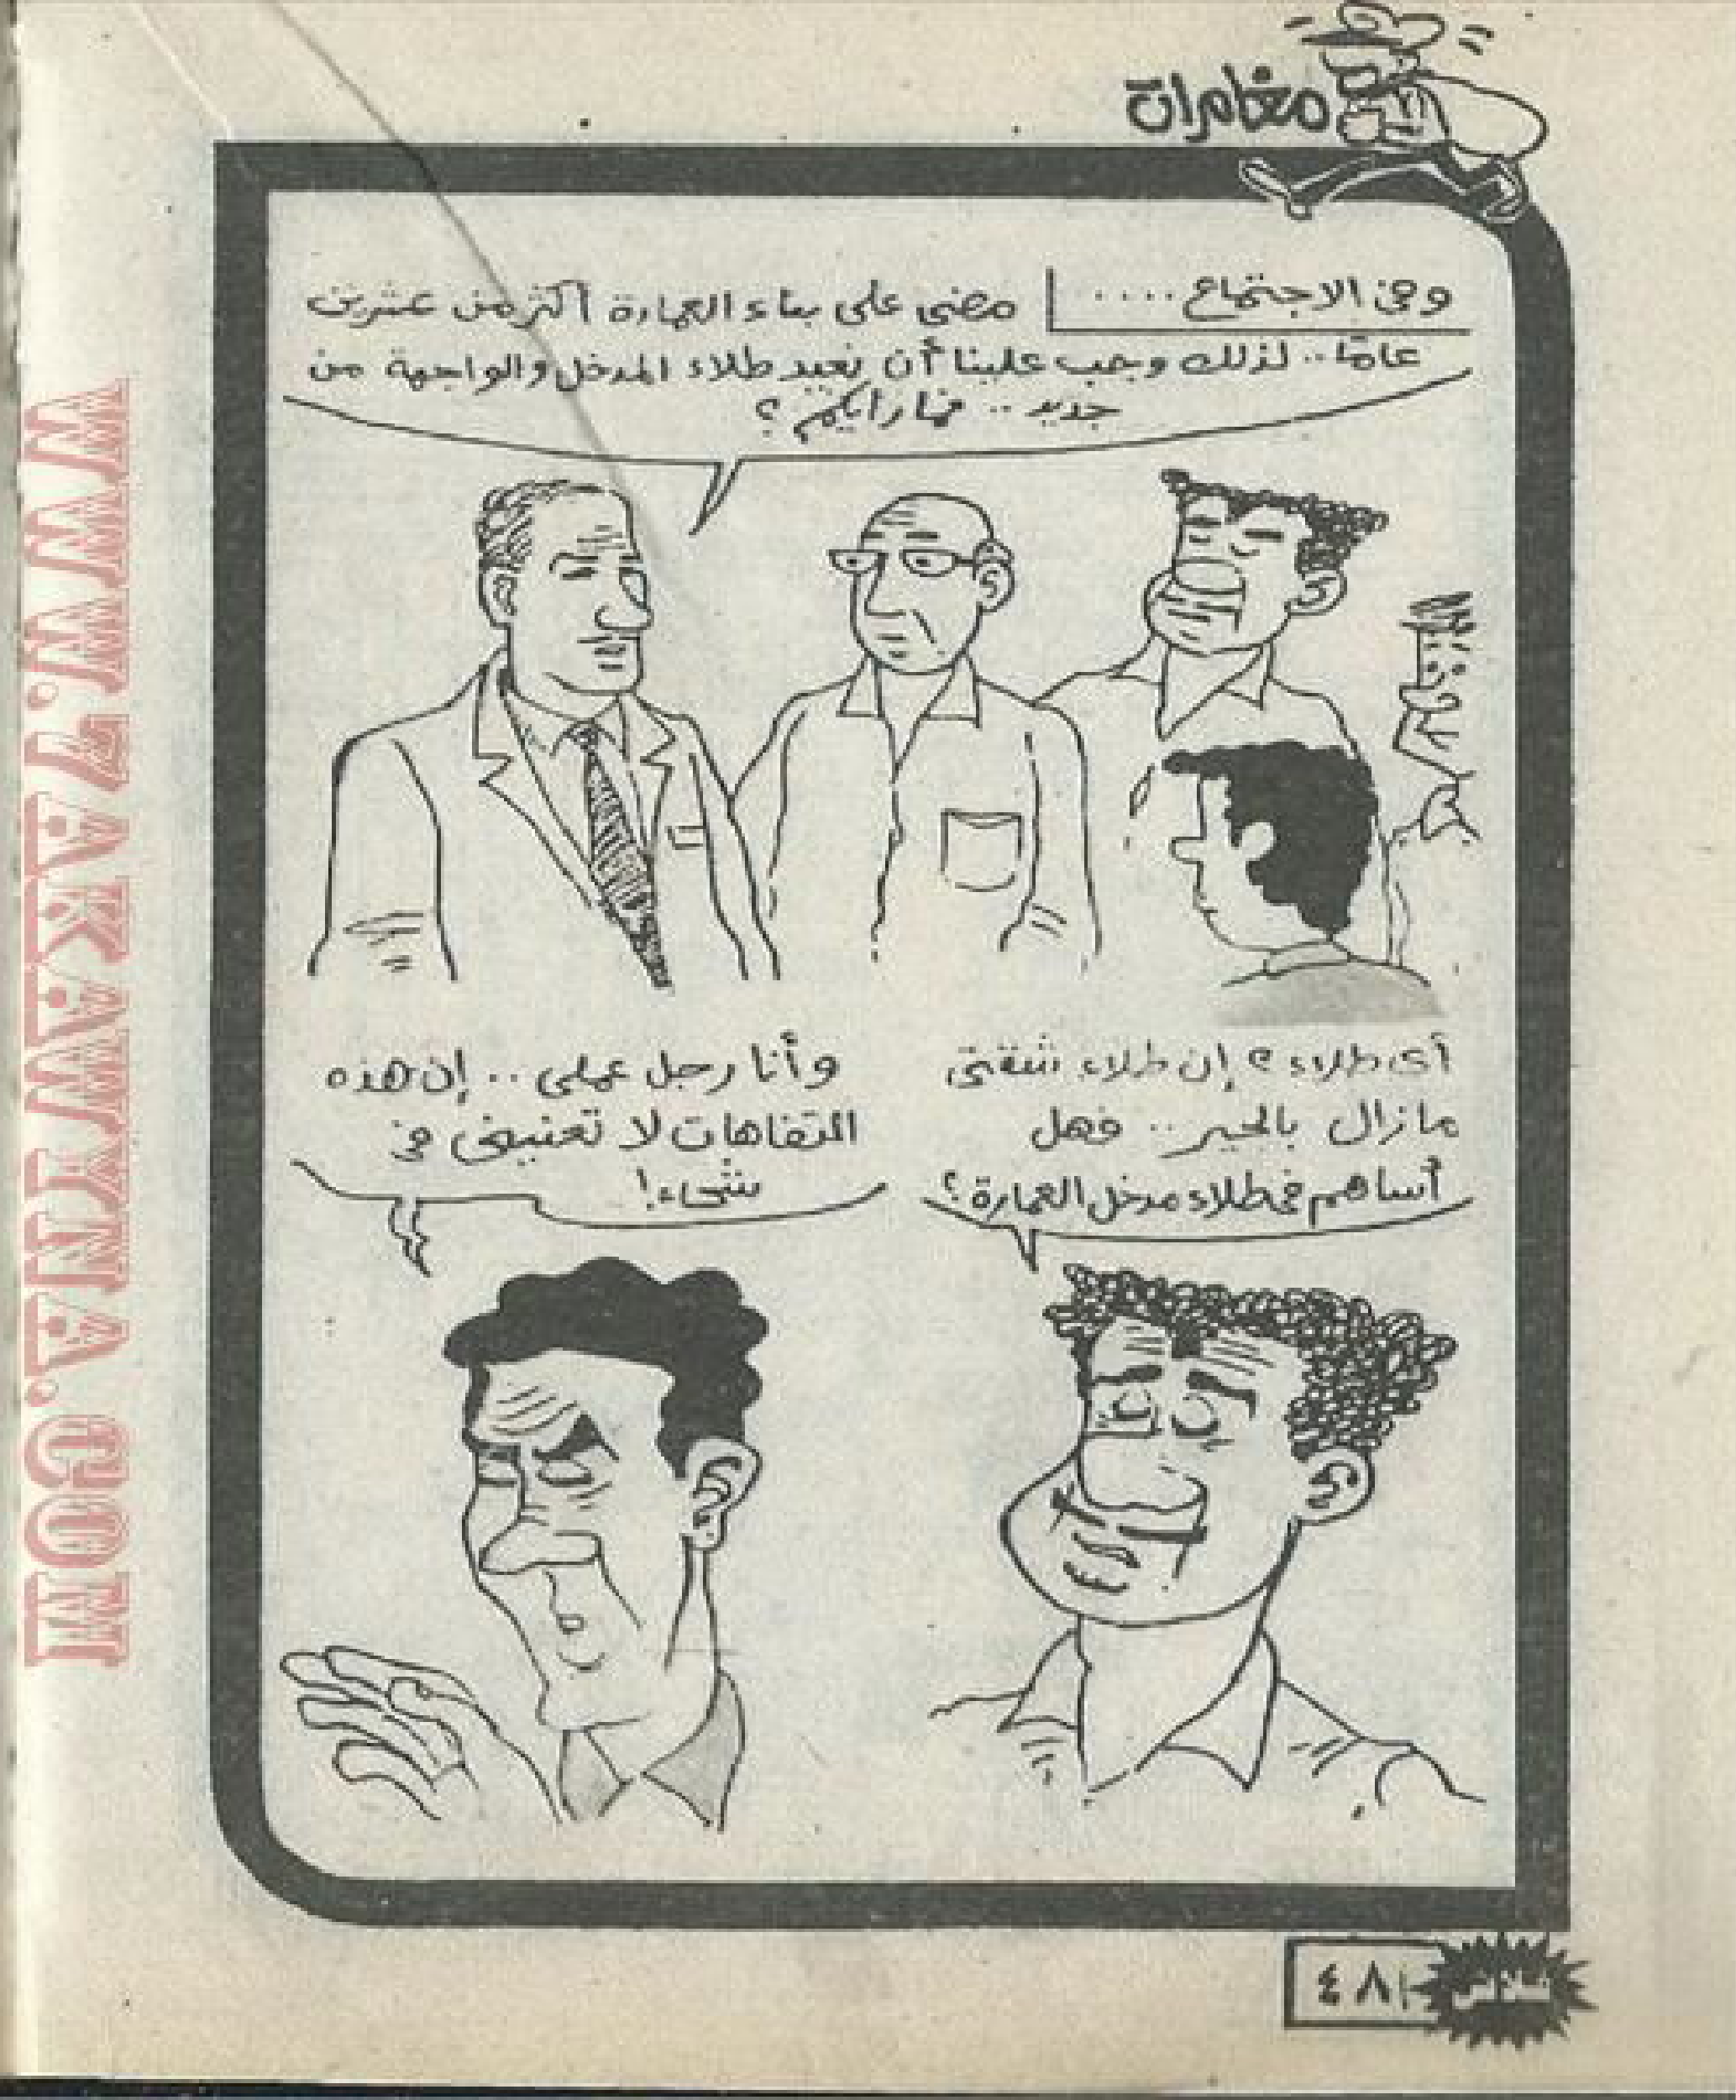 مغامرات
وفى الاجتماع ....
مضى على بناء العمارة أكثر من عشرين
عامًا .. لذلك وجب علينا أن نعيد طلاء المدخل والواجهة من
جديد .. فما رأيكم ؟
أى طلاء ؟ إن طلاء شقتى
مازال بالجير .. فهل
أساهم فى طلاء مدخل العمارة ؟
وأنا رجل عملى .. إن هذه
التفاهات لا تعنينى فى
شىء !
٤٨
WWW.7AKAWITNA.COM